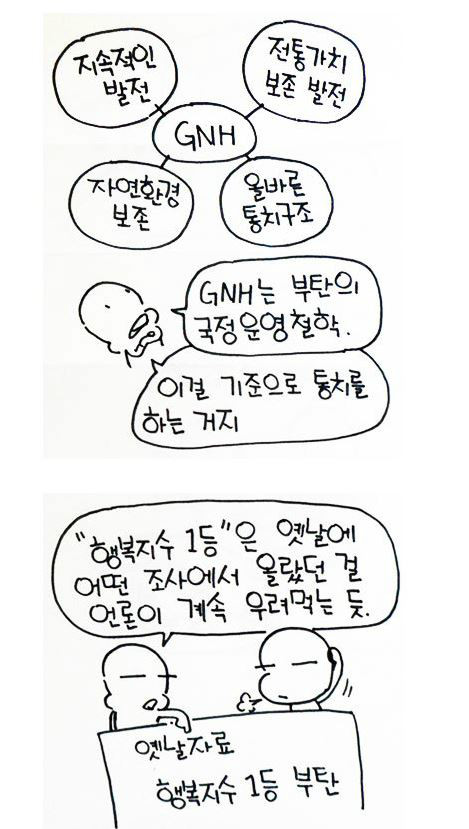 지속적인
발전
전통가치
보존 발전
GNH
자연환경
보존
올바른
통치구조
GNH는 부탄의
국정운영철학.
이걸 기준으로 통치를
하는 거지
"행복지수 1등"은 옛날에
어떤 조사에서 올랐던 걸
언론이 계속 우려먹는 듯.
옛날자료
행복지수 1등 부탄